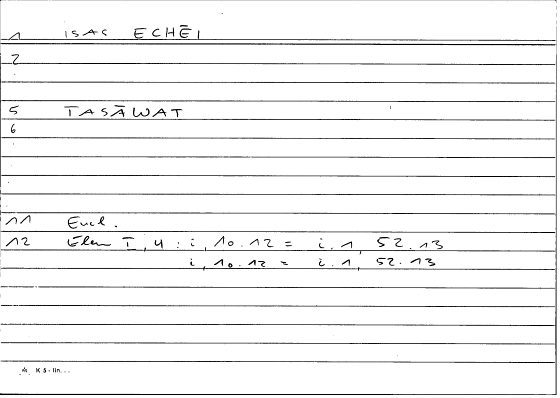 1 ISAS ECHĒI
2
5 TASĀWAT
6
11 Eucl.
12 Elem I, 4 : i, 10.12 = i.1, 52.13
i, 10.12 = i.1, 52.13
K 5 - lin...